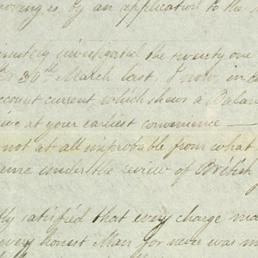 is, by an application to the
investigated the twenty one
30th March last. I now in
account current which shews a Balan
at your earliest convenience —
not at all improbable from what
came under the review of British
satisfied that every charge ma
every honest Man for never was m